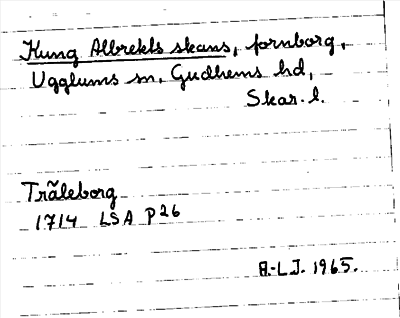 Kung Albrekts skans, fornborg,
Ugglums sn, Gudhems hd,
Skar. l.
Träleborg
1714 LSA P26
A.-L.J. 1965.